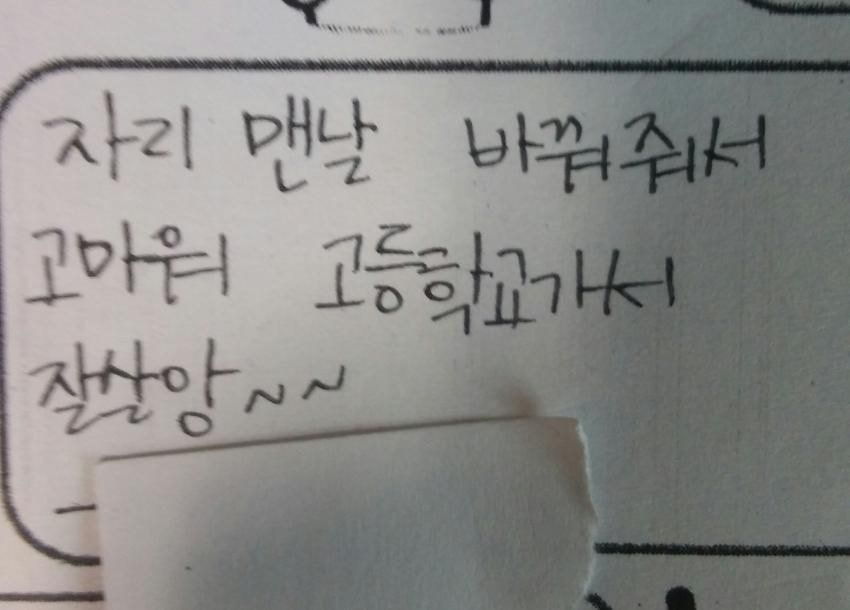 자리 맨날 바꿔줘서
고마워 고등학교가서
잘살앙~~